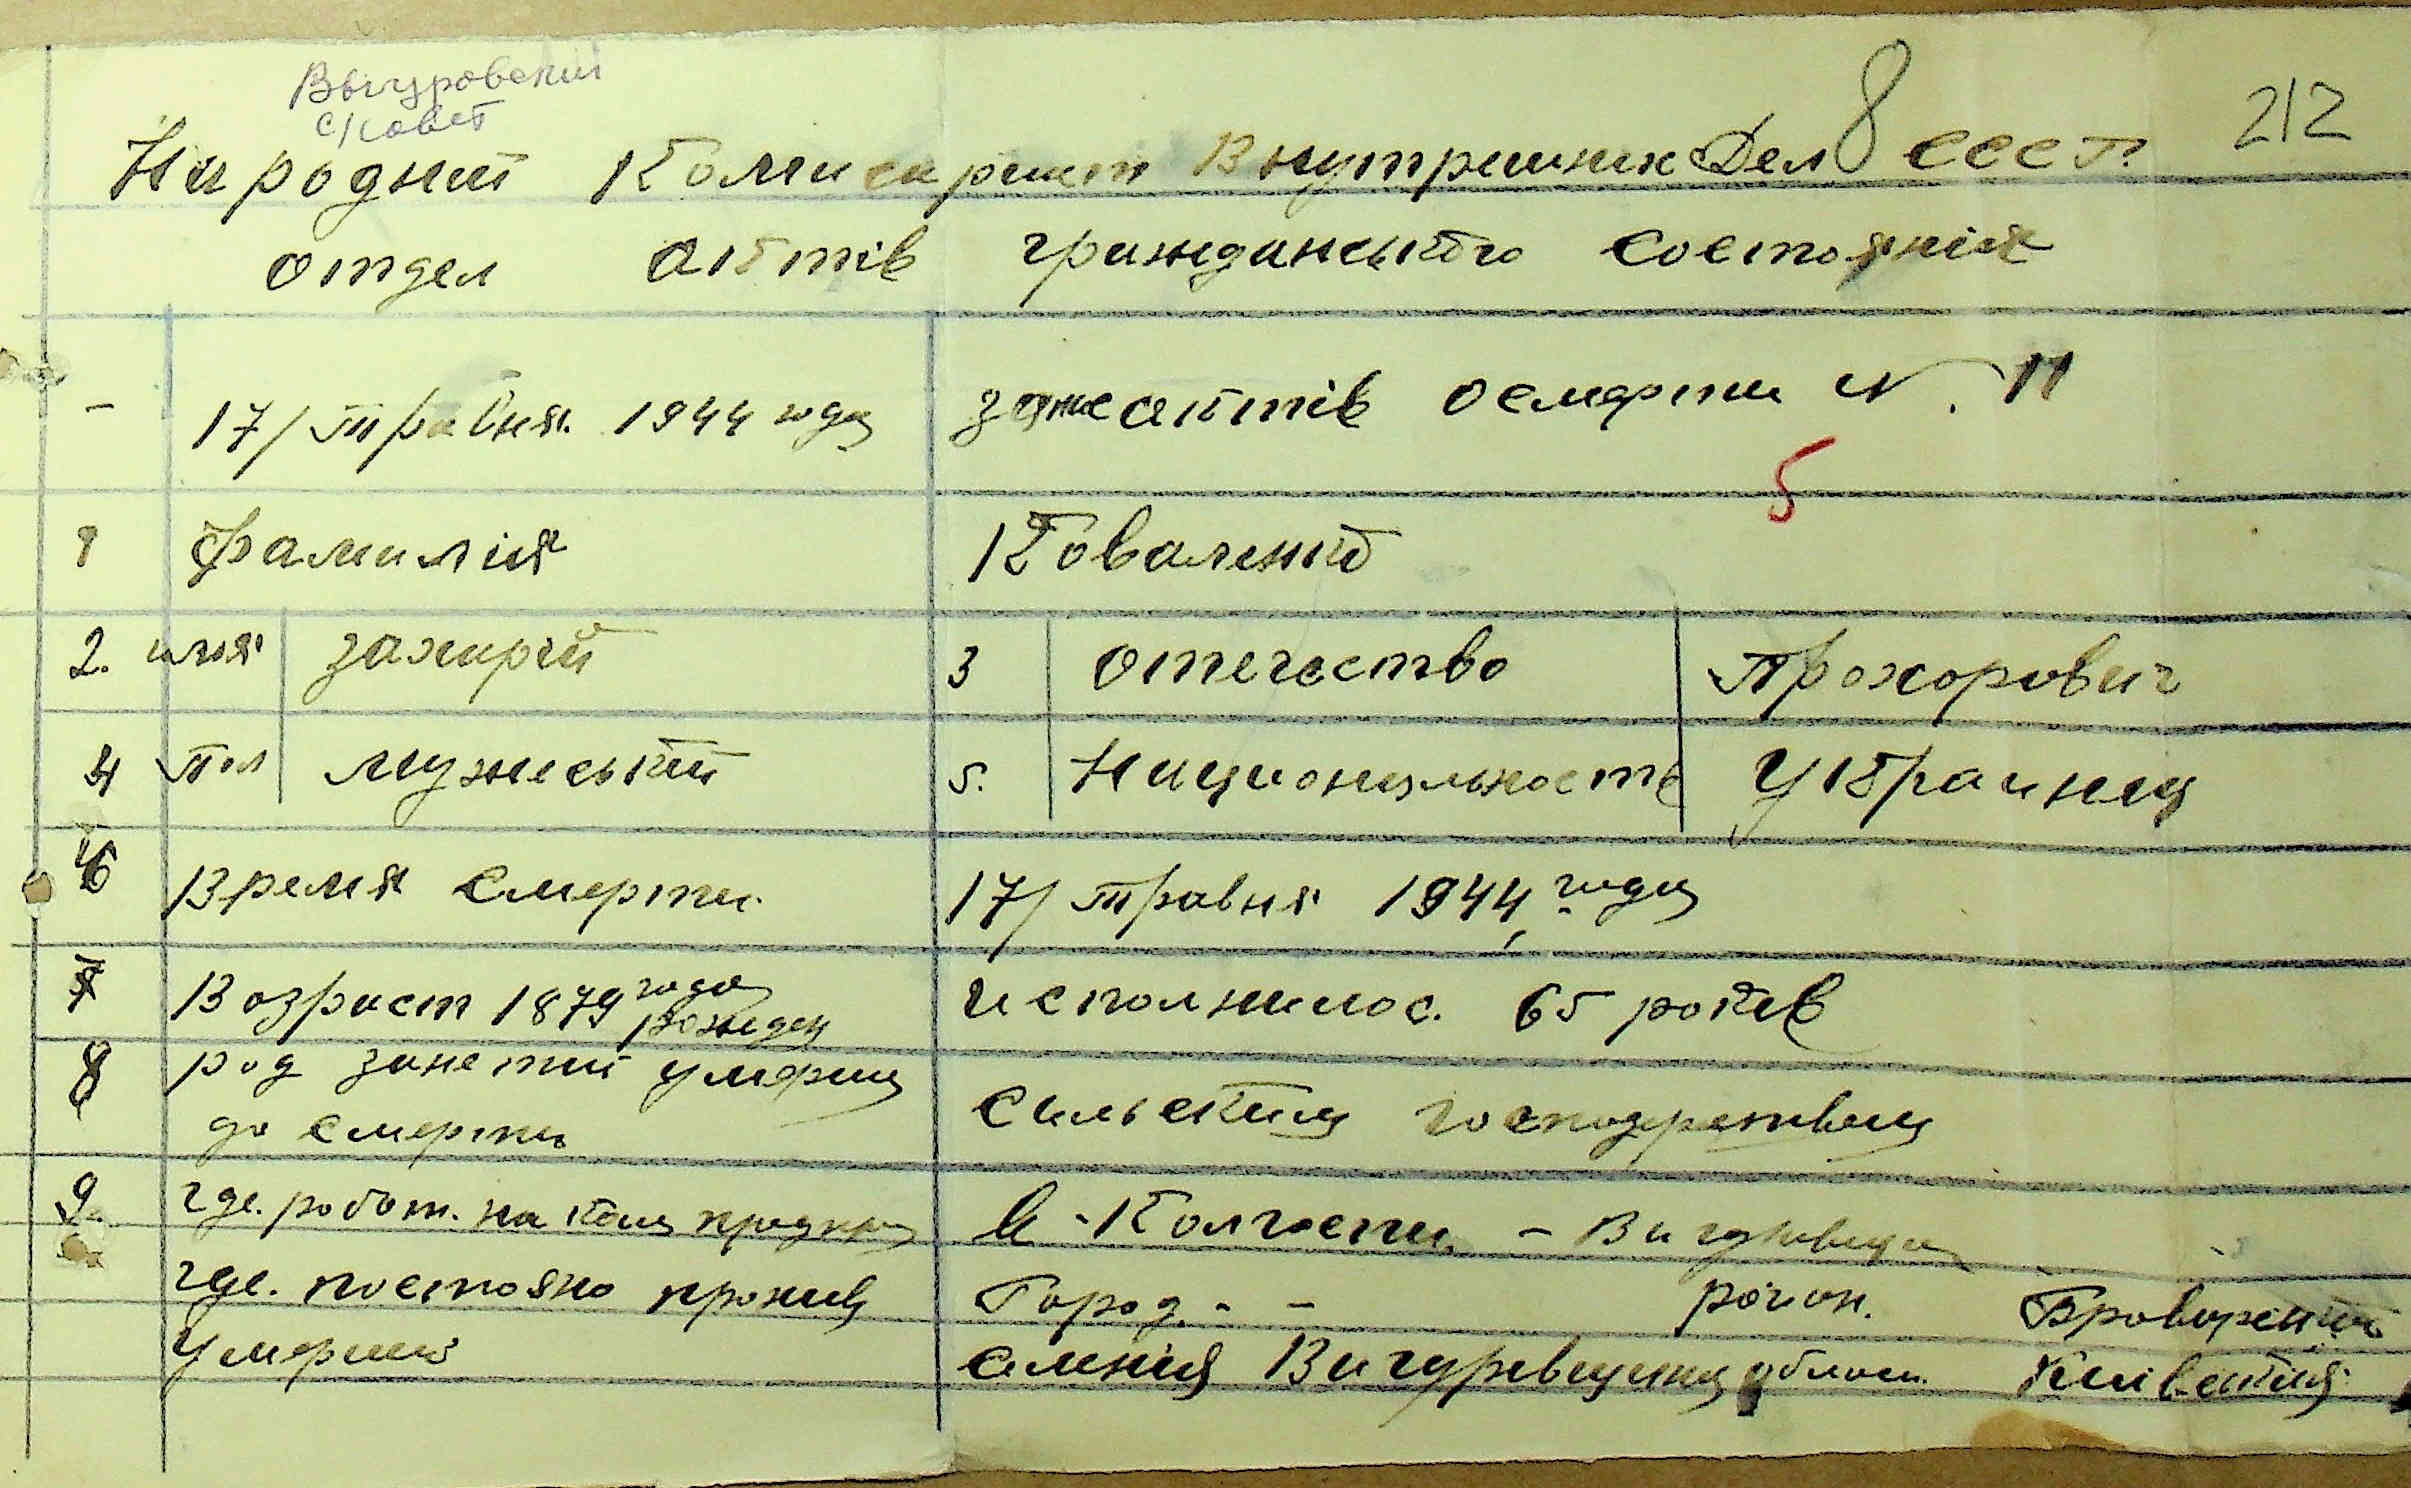 Выгуровский
с/совет
8
212
Народний Комисариат Внутришних Дел СССР
отдел актив гражданського состояния
- 17/ Травня 1944 года  актив о смерти N. 11
5
1 Фамилия Коваленко
2. имя Захирей 3 отечество Прохорович
4 Пол мужеський 5. Национальность Украинец
6 Время смерти 17/ Травня 1944 года
7 Возраст 1879 года рожден исполнилос. 65 роков
8 род занетий умерш
до смерти сильским господрством
9. где. робот. на 
в Колгоспи - Вигуревщина
где. постояно прожив Город. - - район. Броварский
умерший Вигуревщина област. Киивский